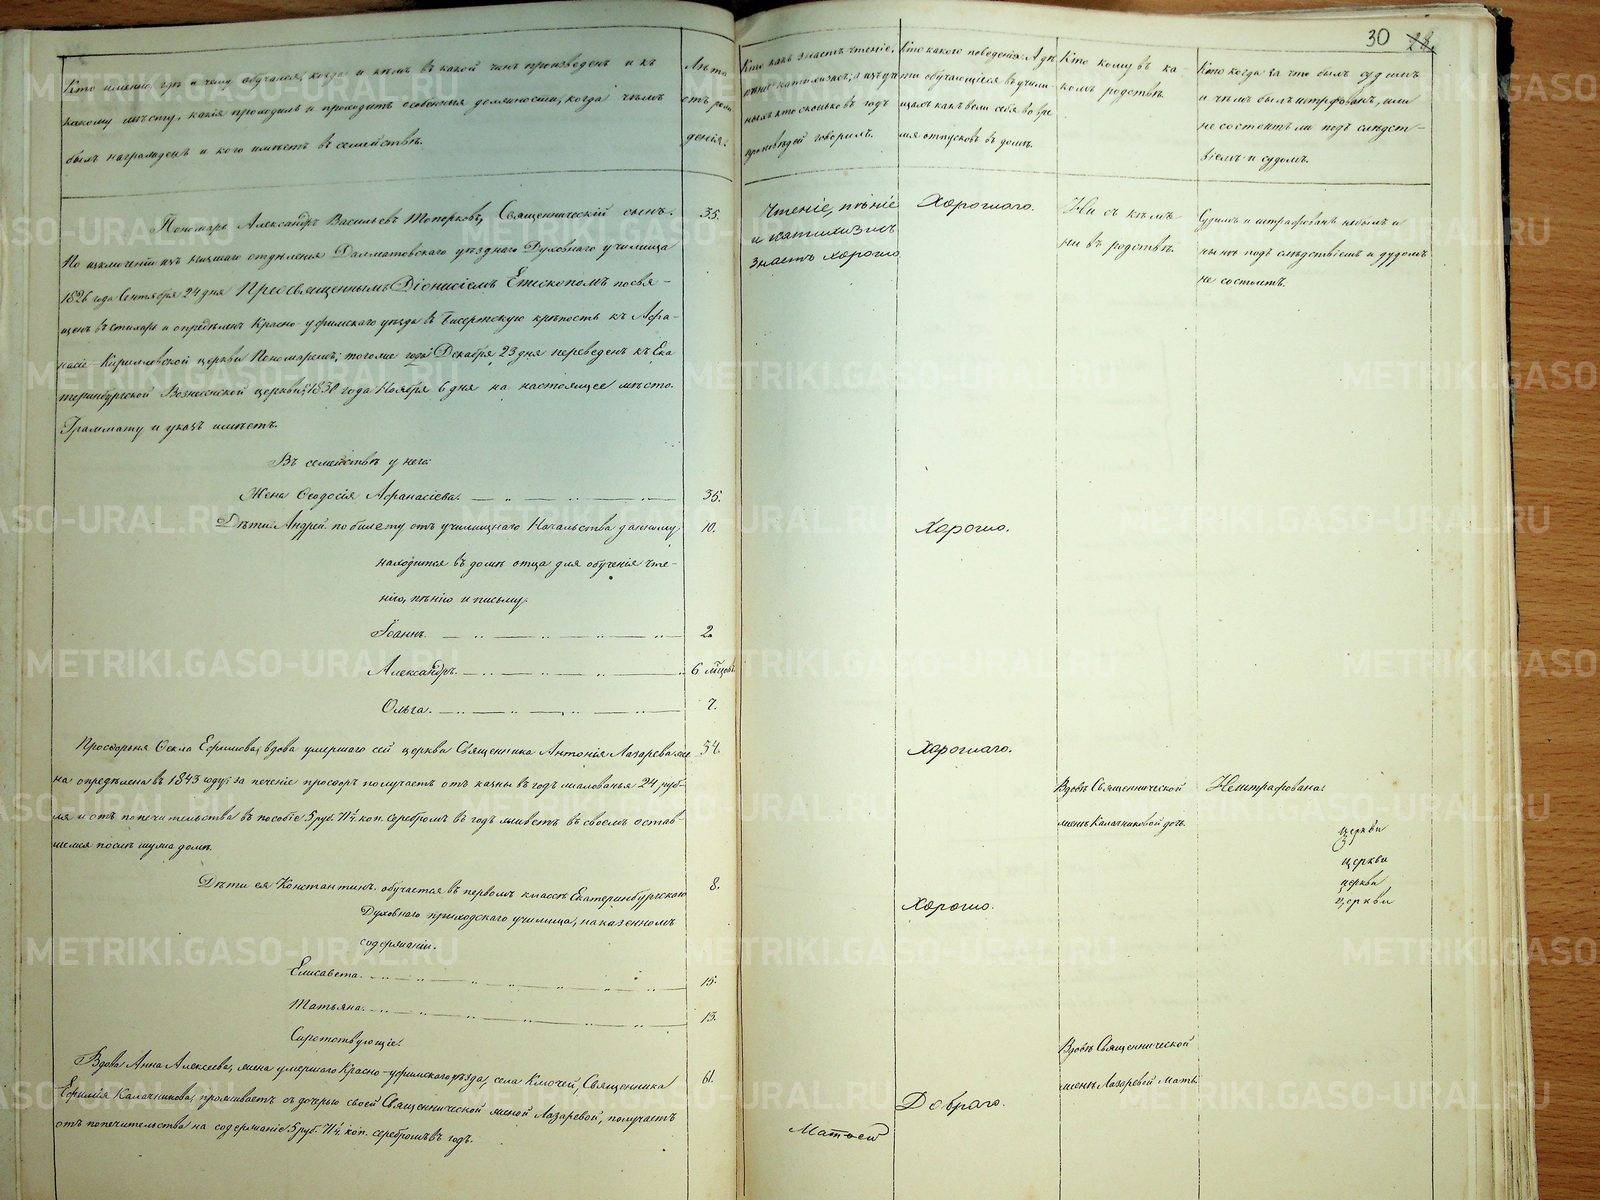 30 28.
Кто именно, гдѣ и чему обучался, когда и кѣмъ въ какой чинъ произведенъ и къ
какому мѣсту, какія проходилъ и проходитъ особенныя должности, когда чѣмъ
былъ награжденъ и кого имѣетъ въ семействѣ.
Лѣта
отъ рож
денія.
Кто какъ знаетъ чтеніе,
пѣніе и катихизисъ; а изъ уче
ныхъ кто сколько въ годъ
проповѣдей говорилъ.
Кто какого поведенія. А дѣ
ти обучающіеся въ учили-
щахъ какъ вели себя во вре
мя отпусковъ въ домъ.
Кто кому въ ка-
комъ родствѣ.
Кто когда за что былъ судимъ
и чѣмъ былъ штрафованъ, или
не состоитъ ли подъ слѣдст-
віемъ и судомъ.
Пономарь Александръ Васильевъ Топорковъ, Священническій сынъ.
По изключеніи изъ низшаго отдѣленія Далматовскаго уѣзднаго Духовнаго училища
1826 года Сентября 24 дня Преосвященнымъ Діонисіемъ Епископомъ посвя-
щенъ въ стихарь и опредѣленъ Красно-уфимскаго уѣзда въ Бисертскую крѣпость къ Афа-
насіе-Кирилловской церкви Пономаремъ; тогоже года Декабря 23 дня переведенъ къ Ека
теринбургской Вознесенской церкви; 1830 года Ноября 6 дня на настоящее мѣсто.
Граммату и указъ имѣетъ.
35.
Чтеніе, пѣніе
и катихизисъ
знаетъ хорошо
Хорошаго.
Ни съ кѣмъ
ни въ родствѣ.
Судимъ и штрафованъ небылъ и
нынѣ подъ слѣдствіемъ и судомъ
не состоитъ.
Въ семействѣ у него:
Жена Ѳеодосія Афанасіева. 35.
Дѣти: Андрей по билету отъ училищнаго Начальства данному, 10. Хорошо.
находится въ домѣ отца для обученія чте-
нію, пѣнію и письму.
Іоаннъ. 2.
Александръ. 6 мѣцовъ
Ольга. 7.
Просфорня Ѳекла Ефимова, вдова умершаго сей церкви Священника Антонія Лазарева 54. Хорошаго.
на опредѣлена въ 1843 году; за печеніе просфоръ получаетъ отъ казны въ годъ жалованья 24 руб-
ля и отъ попечительства въ пособіе 5 руб. 71¼ коп. серебромъ въ годъ живетъ въ своемъ остав
шемся послѣ мужа домѣ.
Вдовѣ Священнической
женѣ Калачниковой дочь.
Нештрафована.
церкви
церкви
церкви
церкви
Дѣти ея Константинъ. обучается въ первомъ классѣ Екатеринбургскаго 8. Хорошо.
Духовнаго приходскаго училища, на казенномъ
содержаніи.
Елисавета. 15.
Татьяна. 13.
Сиротствующіе:
Вдова Анна Алексеева, жена умершаго Красно-уфимскаго уѣзда, села Ключей, Священника 61. Добраго.
Ефимія Калачникова, проживаетъ съ дочерью своей Священнической женой Лазаревой, получаетъ
отъ попечительства на содержаніе 5 руб. 71¼ коп. серебромъ въ годъ.
Вдовѣ Священнической
женѣ Лазаревой мать.
METRIKI.GASO-URAL.RU